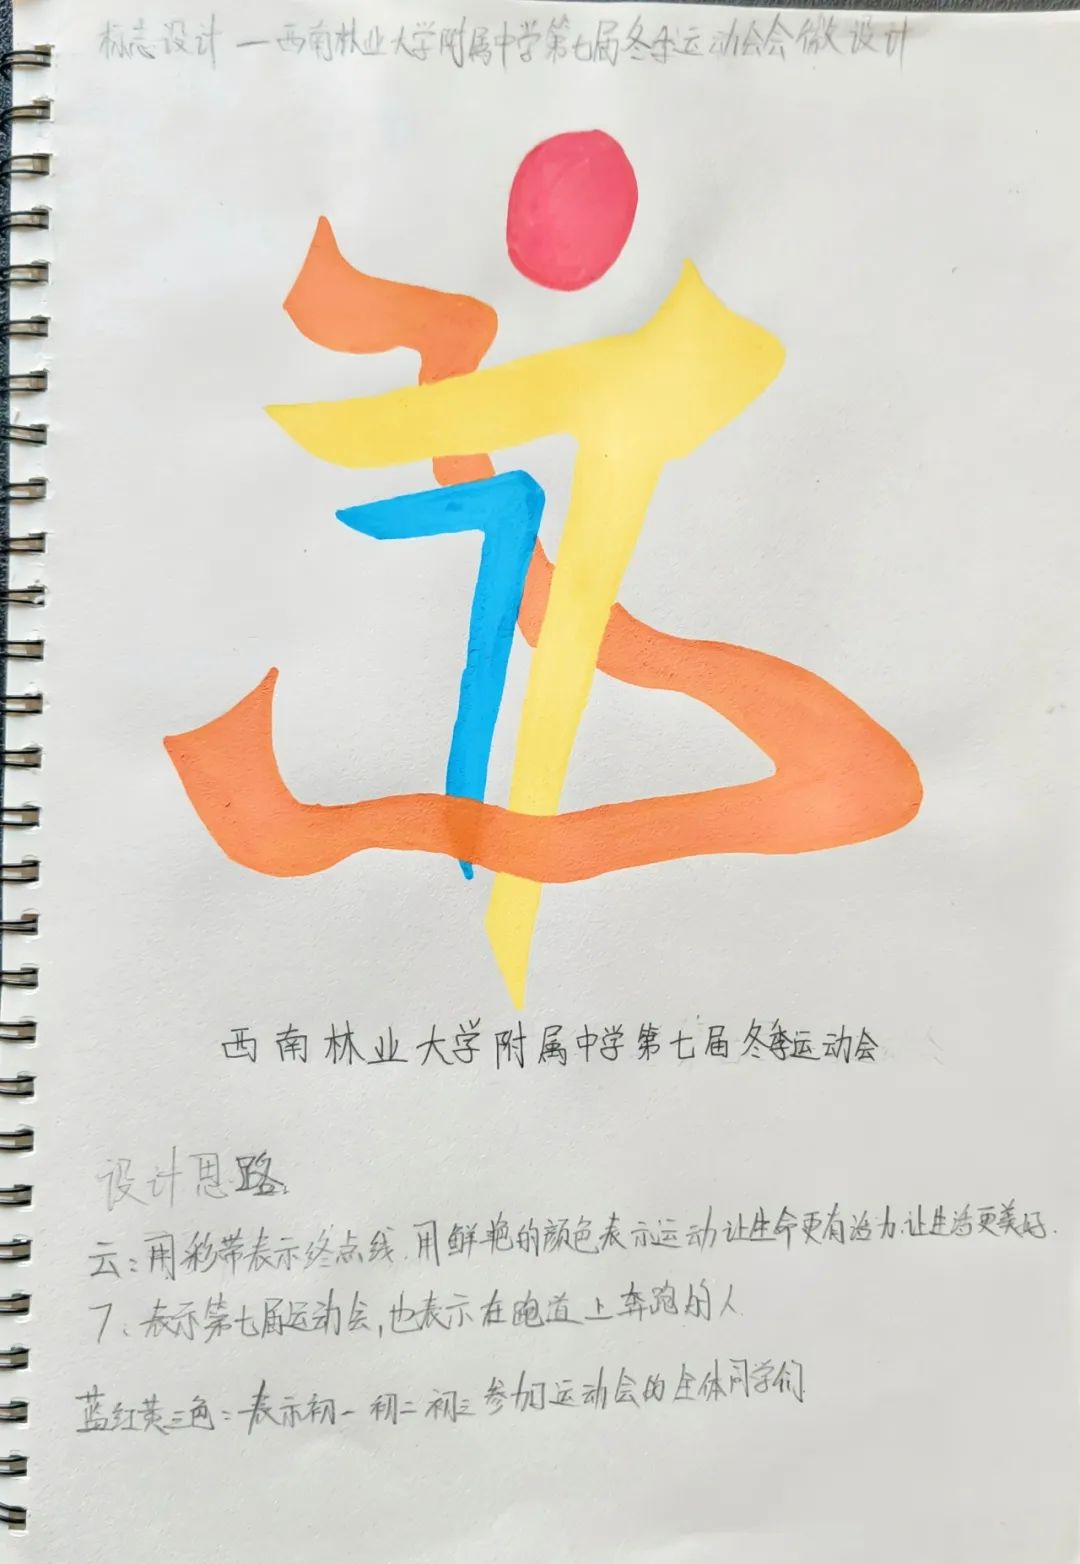 标志设计 — 西南林业大学附属中学第七届冬季运动会会微设计
西南林业大学附属中学第七届冬季运动会
设计思路:
云:用彩带表示终点线.用鲜艳的颜色表示运动让生命更有活力.让生活更美好.
7:表示第七届运动会,也表示在跑道上奔跑的人.
蓝红黄三色:表示初一初二初三参加运动会的全体同学们